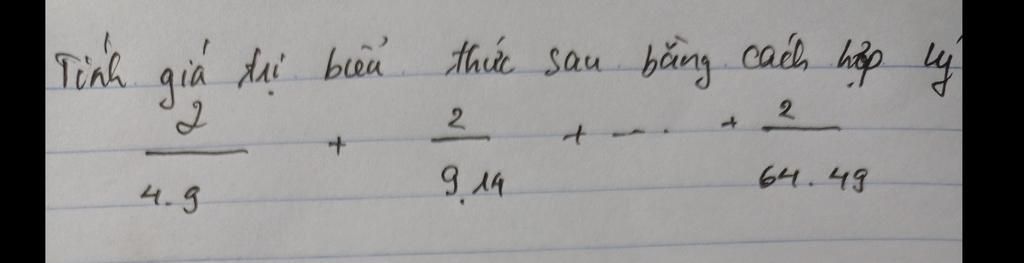 Tính giá trị biểu thức sau bằng cách hợp lý
2/4.9 + 2/9.14 + --. + 2/64.49